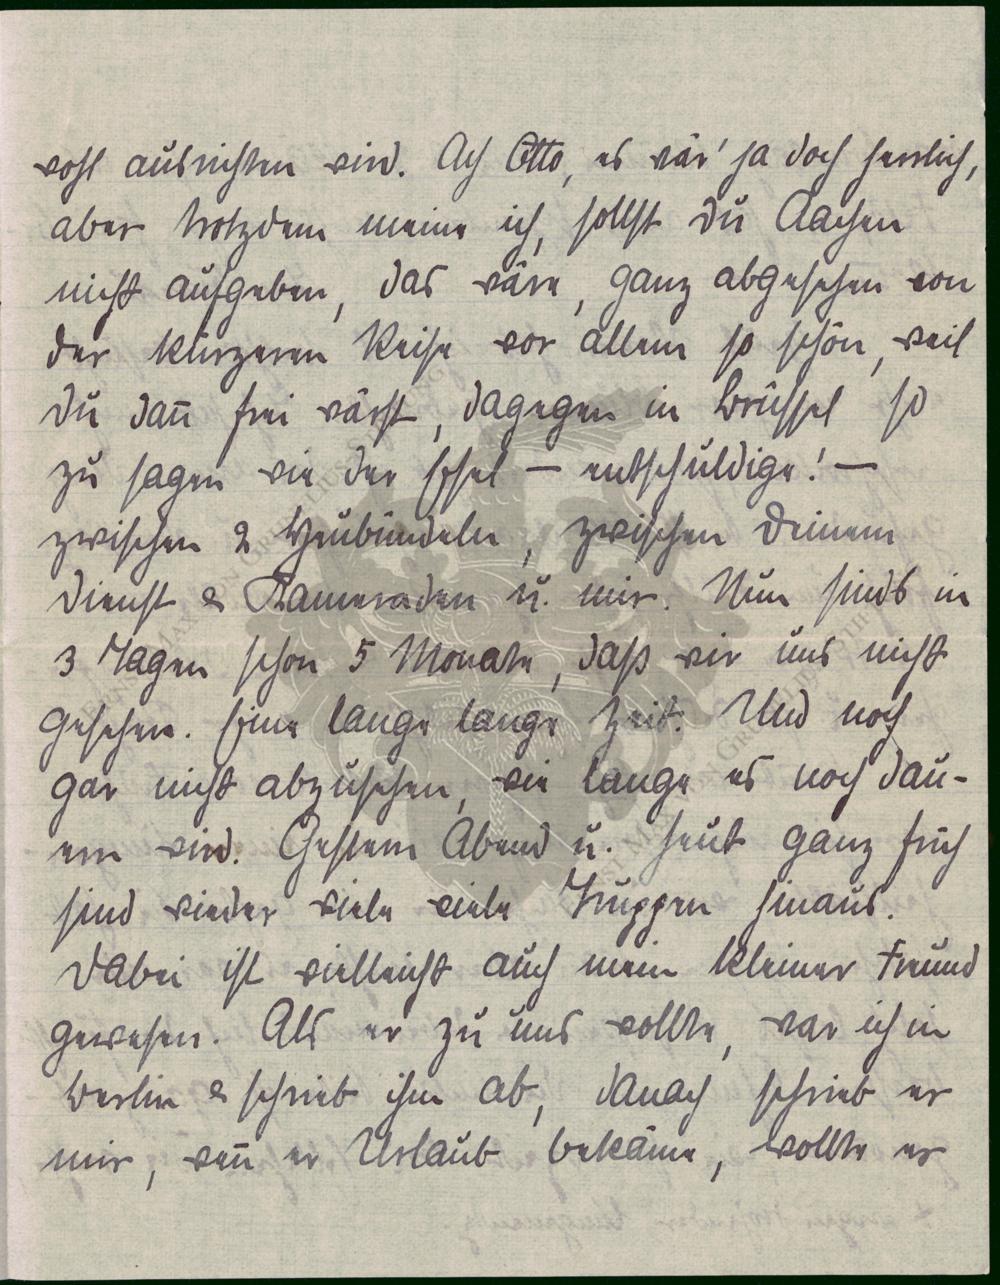 wohl ausrichten wird. Ach Otto, es wär' ja doch herrlich,
aber trotzdem meine ich, sollst Du Aachen
nicht aufgeben, das wäre, ganz abgesehen von
der kürzeren Reise vor allem so schön, weil
Du dan̄ frei wärst, dagegen in Brüssel so
zu sagen wie der Esel — entschuldige! —
zwischen 2 Heubündeln, zwischen Deinem
Dienst & Kameraden u. mir. Nun sinds in
3 Tagen schon 5 Monate, daß wir uns nicht
gesehen. Eine lange lange Zeit. Und noch
gar nicht abzusehen, wie lange es noch dau-
ern wird. Gestern Abend u. heut ganz früh
sind wieder viele viele Truppen hinaus.
Dabei ist vielleicht auch mein kleiner Freund
gewesen. Als er zu uns wollte, war ich in
Berlin & schrieb ihm ab, danach schrieb er
mir, wen̄ er Urlaub bekäme, wollte er